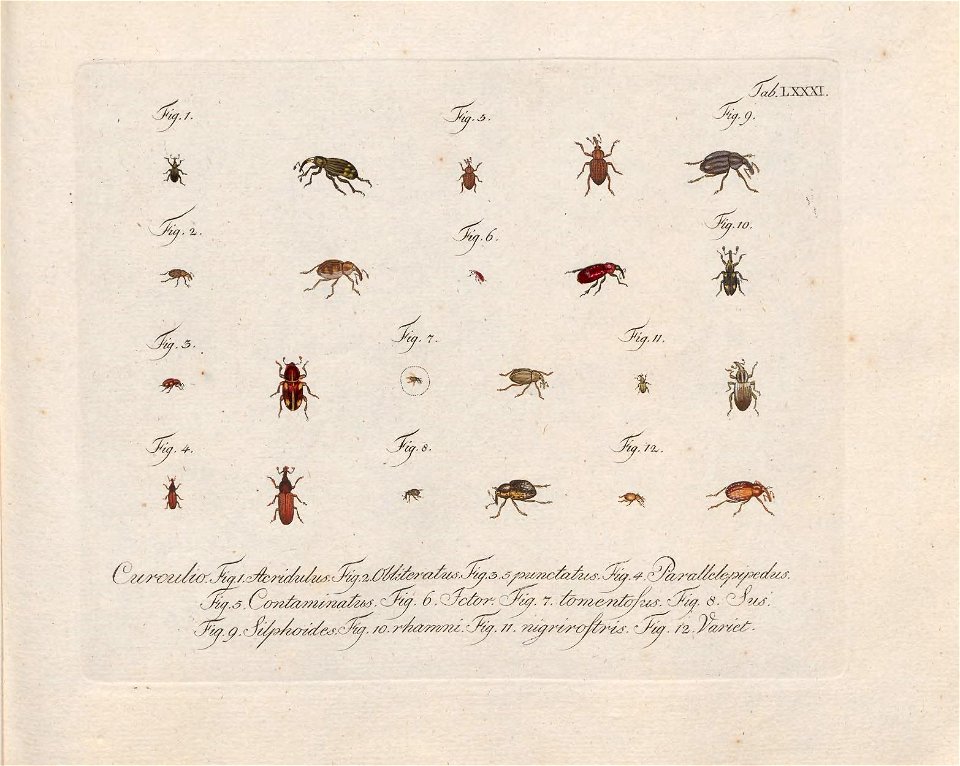 Tab. LXXXI.
Fig. 1.
Fig. 5.
Fig. 9.
Fig. 2.
Fig. 6.
Fig. 10.
Fig. 3.
Fig. 7.
Fig. 11.
Fig. 4.
Fig. 8.
Fig. 12.
Curculio. Fig. 1. Acridulus. Fig. 2. Obliteratus. Fig. 3. 5 punctatus. Fig. 4. Parallelepipedus.
Fig. 5. Contaminatus. Fig. 6. Ictor. Fig. 7. tomentosus. Fig. 8. Sus.
Fig. 9. Silphoides. Fig. 10. rhamni. Fig. 11. nigrirostris. Fig. 12. Variet.